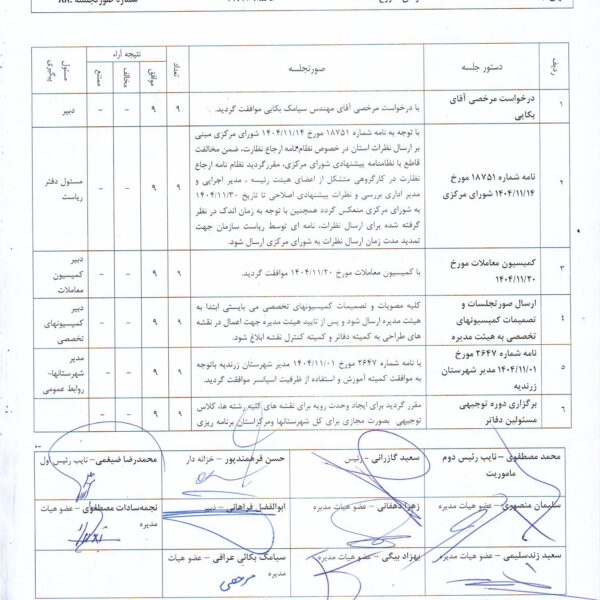 شماره صورتجلسه
ردیف
دستور جلسه
صورتجلسه
تعداد
نتیجه آراء
موافق
مخالف
ممتنع
مسئول پیگیری
۱
درخواست مرخصی آقای
بکایی
با درخواست مرخصی آقای مهندس سیامک بکایی موافقت گردید.
۹
۹
–
–
دبیر
۲
نامه شماره ۱۸۷۵۱ مورخ
۱۴۰۴/۱۱/۱۴ شورای مرکزی
با توجه به نامه شماره ۱۸۷۵۱ مورخ ۱۴۰۴/۱۱/۱۴ شورای مرکزی مبنی
بر ارسال نظرات استان در خصوص نظامنامه ارجاع نظارت، ضمن مخالفت
قاطع با نظامنامه پیشنهادی شورای مرکزی، مقرر گردید نظام نامه ارجاع
نظارت در کارگروهی متشکل از اعضای هیئت رئیسه ، مدیر اجرایی و
مدیر اداری بررسی و نظرات پیشنهادی اصلاحی تا تاریخ ۱۴۰۴/۱۱/۳۰
به شورای مرکزی منعکس گردد همچنین با توجه به زمان اندک در نظر
گرفته شده برای ارسال نظرات، نامه ای توسط ریاست سازمان جهت
تمدید مدت زمان ارسال نظرات به شورای مرکزی ارسال شود.
۹
۹
–
–
مسئول دفتر
ریاست
۳
کمیسیون معاملات مورخ
۱۴۰۴/۱۱/۲۰
با کمیسیون معاملات مورخ ۱۴۰۴/۱۱/۲۰ موافقت گردید.
۹
۹
–
–
دبیر
کمیسیون
معاملات
۴
ارسال صورتجلسات و
تصمیمات کمیسیونهای
تخصصی به هیئت مدیره
کلیه مصوبات و تصمیمات کمیسیونهای تخصصی می بایستی ابتدا به
هیئت مدیره ارسال شود و پس از تایید هیئت مدیره جهت اعمال در نقشه
های طراحی به کمیته دفاتر و کمیته کنترل نقشه ابلاغ شود.
۹
۹
–
–
دبیر
کمیسیونهای
تخصصی
۵
نامه شماره ۲۶۴۷ مورخ
۱۴۰۴/۱۱/۰۱ مدیر شهرستان
زرندیه
با نامه شماره ۲۶۴۷ مورخ ۱۴۰۴/۱۱/۰۱ مدیر شهرستان زرندیه باتوجه
به موافقت کمیته آموزش و استفاده از ظرفیت اسپانسر موافقت گردید.
۹
۹
–
–
مدیر
شهرستانها-
روابط عمومی
۶
برگزاری دوره توجیهی
مسئولین دفاتر
مقرر گردید برای ایجاد وحدت رویه برای نقشه های کلیه رشته ها، کلاس
توجیهی بصورت مجازی برای کل شهرستانها ومرکزاستان برنامه ریزی
۹
۹
–
–
محمد مصطفوی – نایب رئیس دوم
ماموریت
سعید گازرانی – رئیس
حسن فرهمندپور – خزانه دار
محمدرضا ضیغمی – نایب رئیس اول
سلیمان منصوری – عضو هیات مدیره
زهرا دهقانی – عضو هیات مدیره
ابوالفضل فراهانی – دبیر
نجمه‌سادات مصطفوی – عضو هیات
مدیره
سعید زندسلیمی – عضو هیات مدیره
بهزاد بیگی – عضو هیات مدیره
سیامک بکائی عراقی – عضو هیات
مدیره
مرخصی